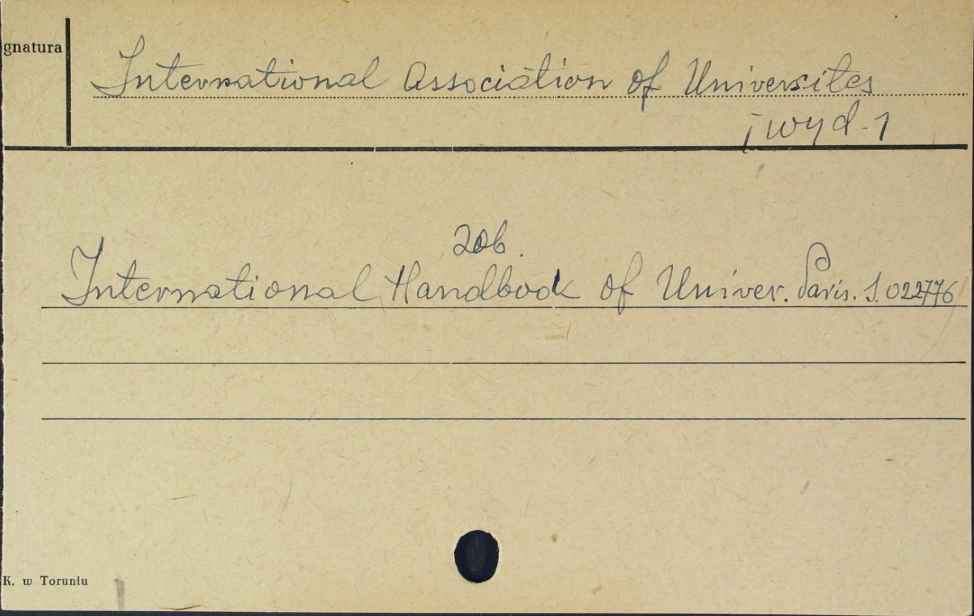 gnatura
International Association of Universites
i wyd. 1
zob.
International Handbook of Univer. Paris. S. 022776
K. w Toruniu